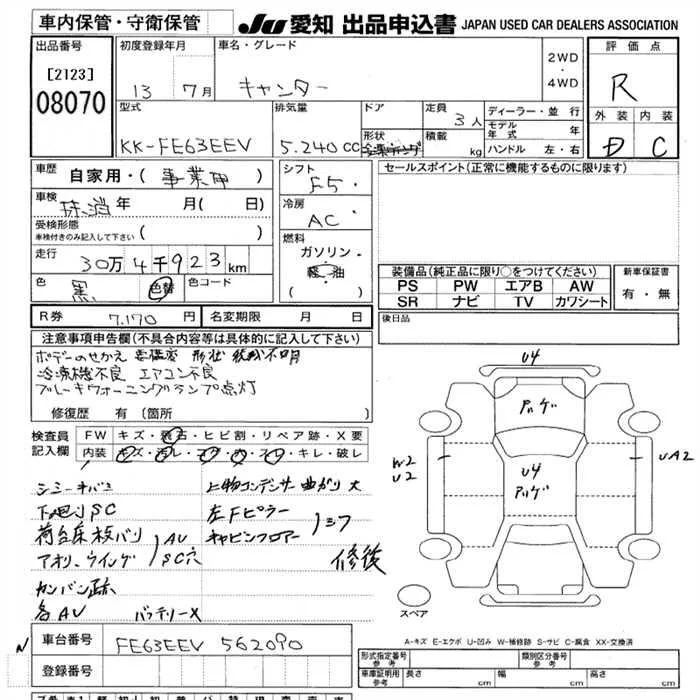 車内保管・守衛保管
JU 愛知 出品申込書 JAPAN USED CAR DEALERS ASSOCIATION
出品番号
[2123]
08070
初度登録年月
13 7月
車名・グレード
キャンター
2WD
・
4WD
評価点
R
外装 内装
D C
型式
KK-FE63EEV
排気量
5.240 CC
ドア
形状
定員
3人
積載
kg
ディーラー・並行
モデル年式 年
ハンドル 左・右
車歴
自家用・( 事業用 )
車検
抹消 年 月( 日)
受検形態
車検付きのみ記入して下さい ( )
走行
30万4千923km
色
黒
色替
色コード
シフト
F5・
冷房
AC・
燃料
ガソリン・
軽・油
( )
セールスポイント(正常に機能するものに限ります)
装備品(純正品に限り○をつけてください)
PS PW エアB AW
SR ナビ TV カワシート
新車保証書
有・無
R券 7,170円
名変期限 月 日
後日品
注意事項申告欄(不具合内容等は具体的に記入して下さい)
ボデーのせかえ
形状
冷凍機不良 エアコン不良
ブレーキウォーニングランプ点灯
修復歴 有 (箇所 )
検査員
記入欄
FW キズ・飛石・ヒビ割・リペア跡・X要
内装 キズ・汚レ・コゲ・穴・スレ・キレ・破レ
下廻りSC
荷台床板バリ
アオリ、ウイング
AU
SC穴
カンバン跡
各AU
バッテリーX
上物コンデンサ曲がり大
左Fピラー
キャビンフロアー
修後
U4
アルゲ
U4
アルゲ
W2
U2
UA2
スペア
A-キズ E-エクボ U-凹み W-補修跡 S-サビ C-腐食 XX-交換済
車台番号
FE63EEV 562090
登録番号
形式指定番号
参考
類別区分番号
参考
車庫証明用
参考
長さ cm 幅 cm 高さ cm